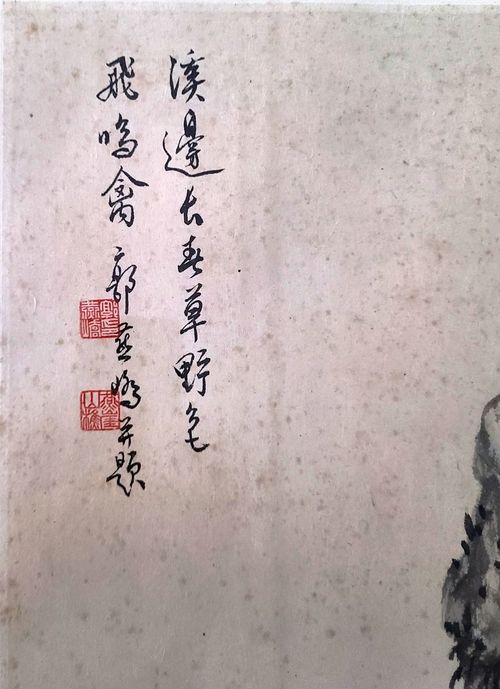 溪邊長春草野色
飛鳴禽 郭燕嶠并題